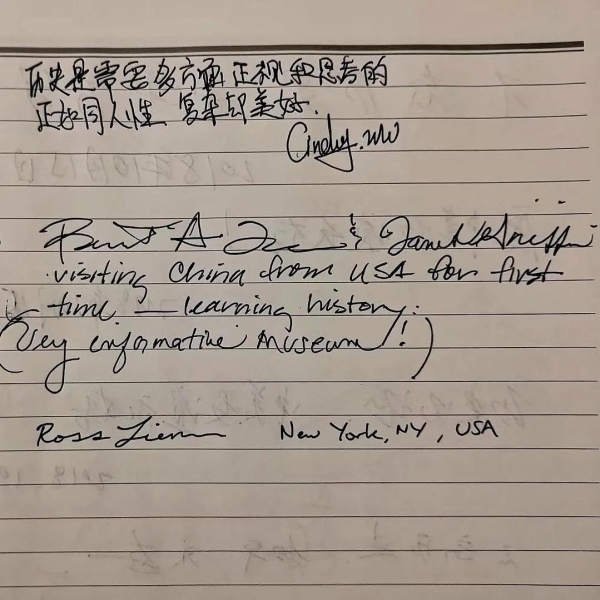 历史是需要多方面正视和思考的
正如同人性 复杂却美好.
Cindy.wu
& Janet
visiting China from USA for first
time — learning history.
(Very informative museum!)
Ross New York, NY, USA